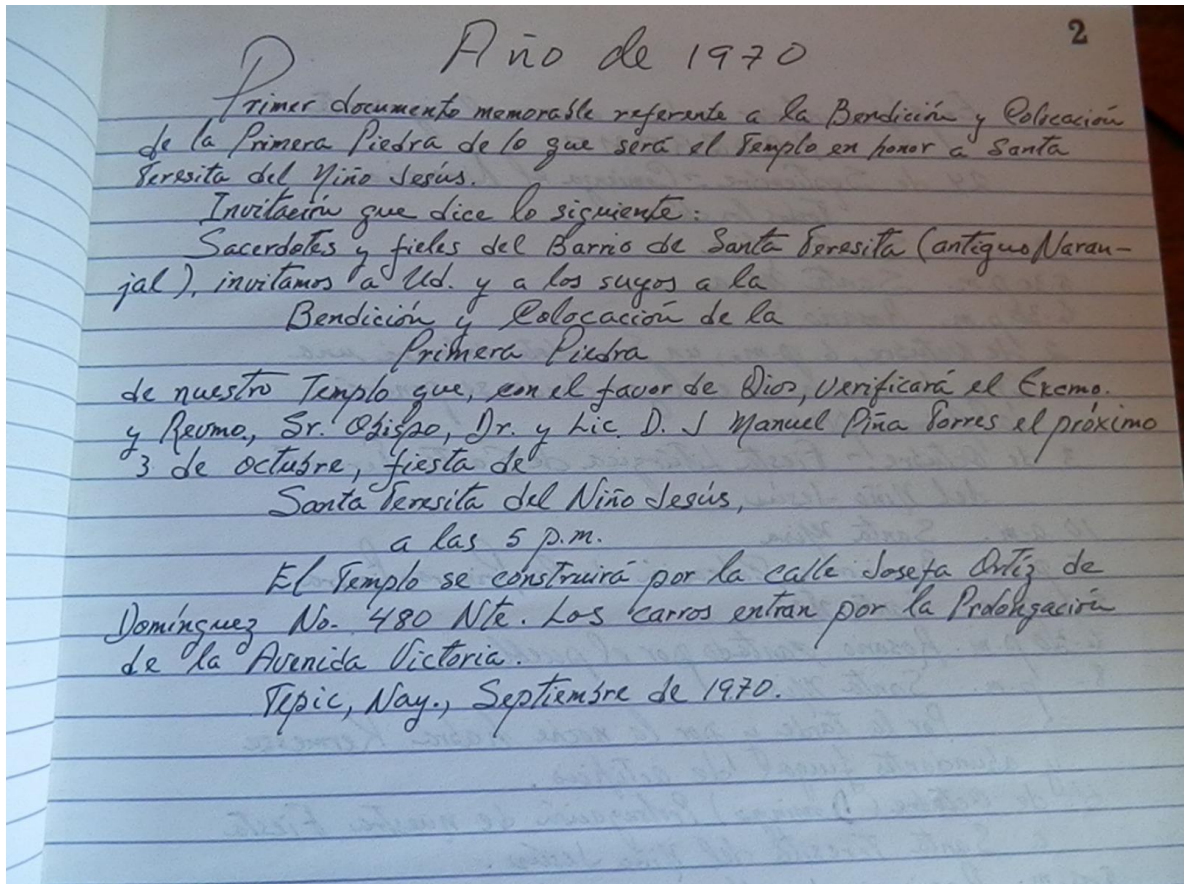 2
Año de 1970
Primer documento memorable referente a la Bendición y Colocación
de la Primera Piedra de lo que será el Templo en honor a Santa
Teresita del Niño Jesús.
Invitación que dice lo siguiente:
Sacerdotes y fieles del Barrio de Santa Teresita (antiguo Naran-
jal), invitamos a Ud. y a los suyos a la
Bendición y Colocación de la
Primera Piedra
de nuestro Templo que, con el favor de Dios, verificará el Excmo.
y Revmo., Sr. Obispo, Dr. y Lic. D. J Manuel Piña Torres el próximo
3 de octubre, fiesta de
Santa Teresita del Niño Jesús,
a las 5 p.m.
El Templo se construirá por la calle Josefa Ortíz de
Domínguez No. 480 Nte. Los carros entran por la Prolongación
de la Avenida Victoria.
Tepic, Nay., Septiembre de 1970.